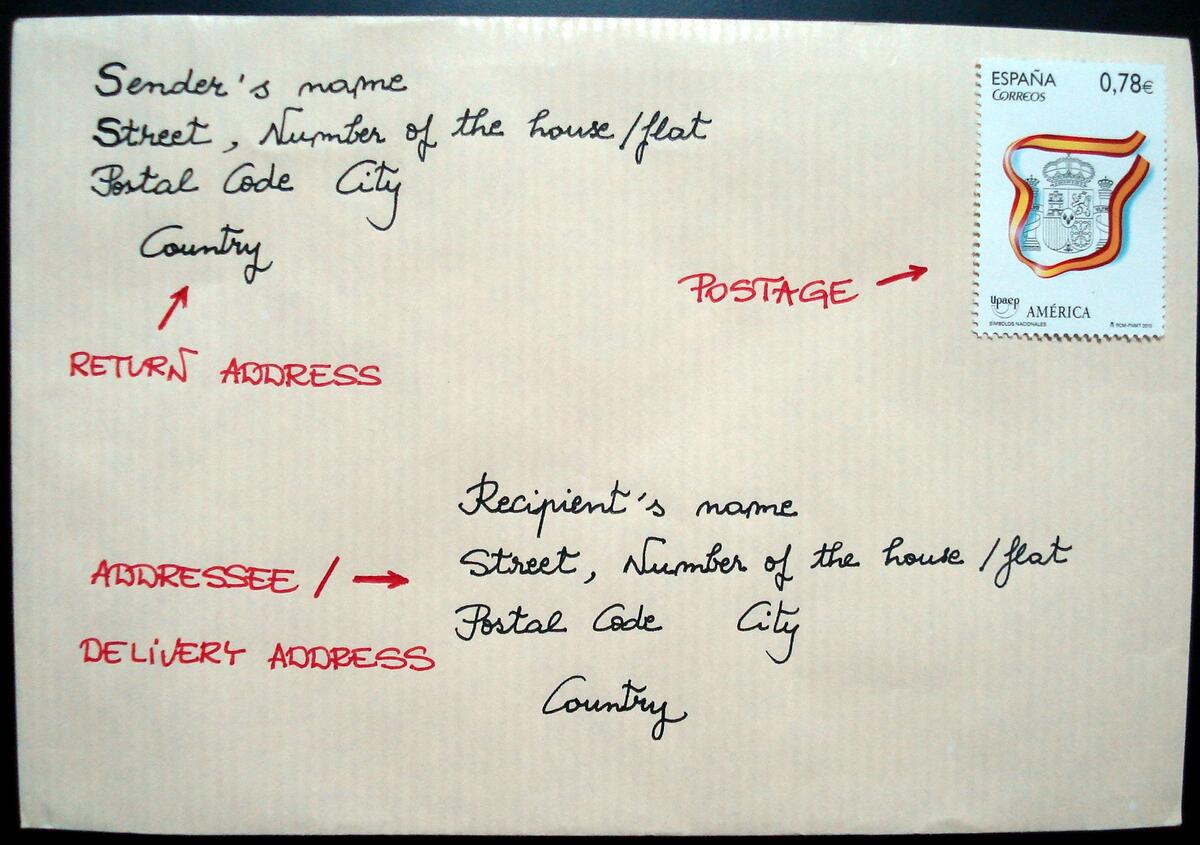 Sender's name
Street, Number of the house/flat
Postal Code City
Country
RETURN ADDRESS
ESPAÑA 0,78€
CORREOS
POSTAGE
upaep AMÉRICA
SÍMBOLOS NACIONALES RCM-FNMT 2010
Recipient's name
Street, Number of the house/flat
Postal Code City
Country
ADDRESSEE /
DELIVERY ADDRESS